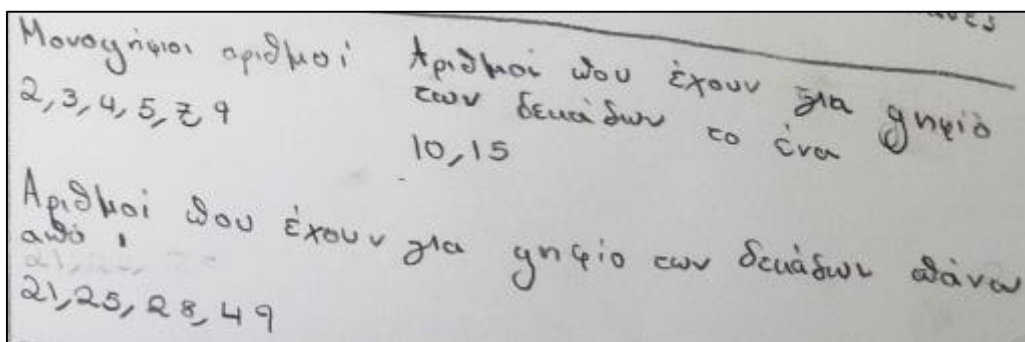 Μονοψήφιοι αριθμοί
2, 3, 4, 5, 7, 9
Αριθμοί που έχουν για ψηφίο
των δεκάδων το ένα
10, 15
Αριθμοί που έχουν για ψηφίο των δεκάδων πάνω
από 1
21, 25, 28, 49